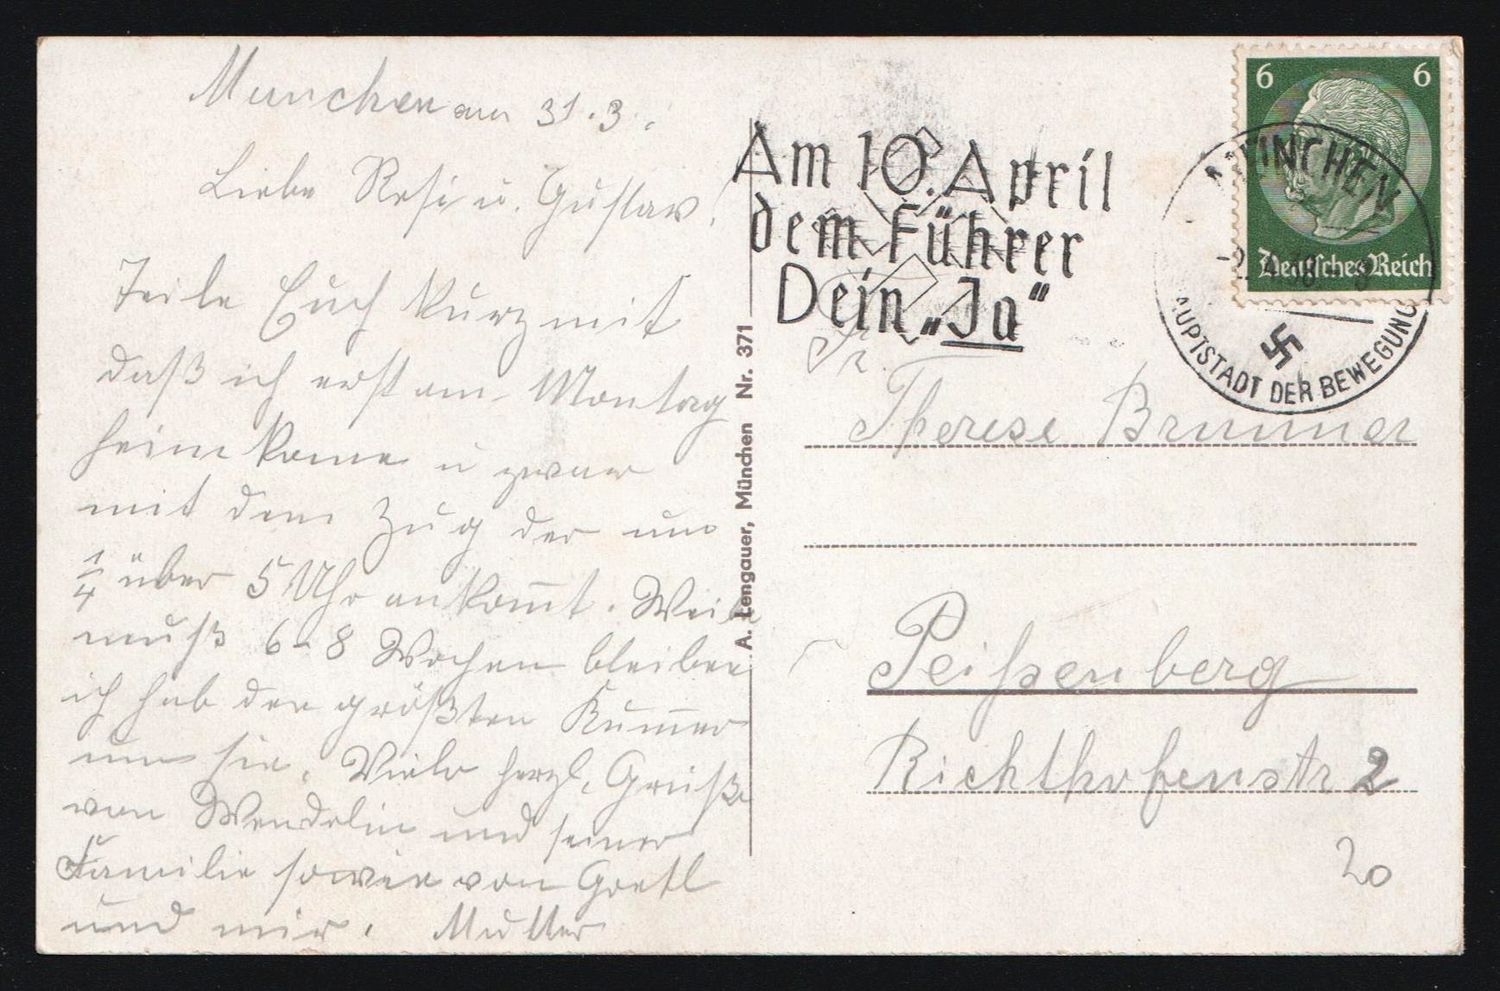 München am 31.3.
Liebe Resi u. Gustav,
Teile Euch kurz mit
daß ich erst am Montag
heim kome u zwar
mit dem Zug der um
1/4 über 5 Uhr ankom̅t. Weil
muß 6-8 Wochen bleiben
ich hab den größten Kum̅er
um sie. Viele herzl. Grüße
von Wendelin und seiner
Familie sowie von Gretl
und mir. Mutter
A. Lengauer, München Nr. 371
Am 10. April
dem Führer
Dein „Ja“
6 6
Deutsches Reich
MÜNCHEN
-2.4.38
HAUPTSTADT DER BEWEGUNG
Fr.
Therese Brunner
Peißenberg
Richthofenstr 2
20